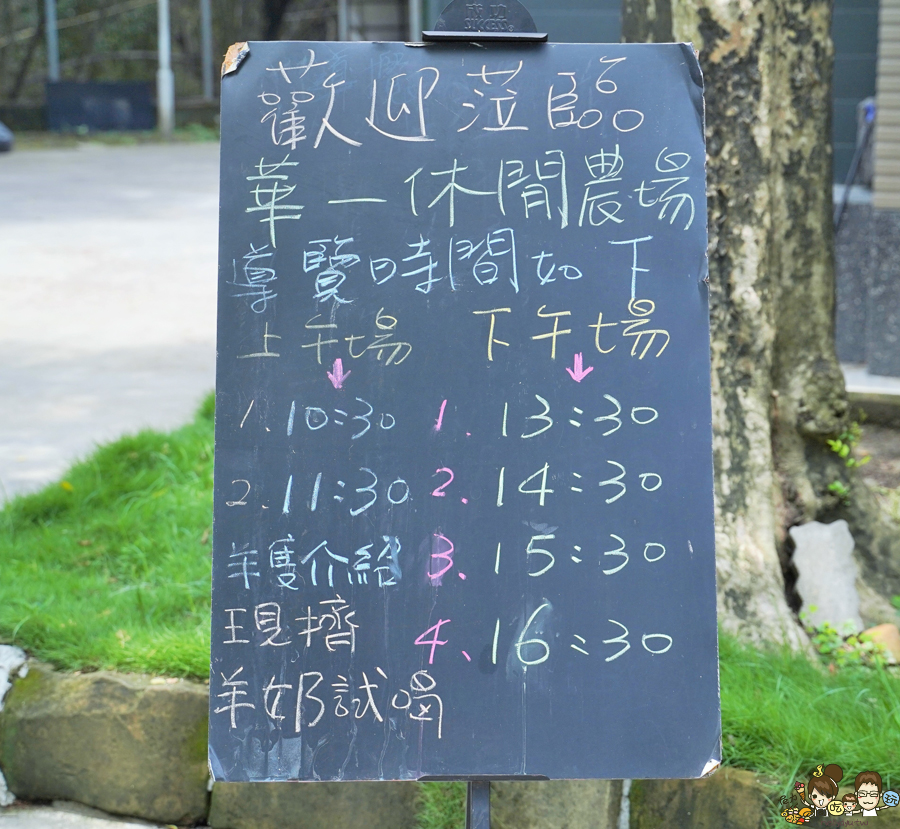 歡迎蒞臨
華一休閒農場
導覽時間如下
上午場 下午場
1. 10:30 1. 13:30
2. 11:30 2. 14:30
3. 15:30
4. 16:30
羊隻介紹
現擠
羊奶試喝